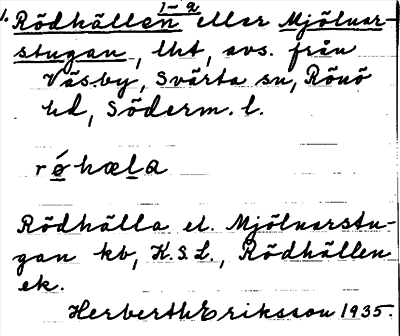 1. Rödhällen 1-2 eller Mjölnar-
stugan, lht, avs. från
Väsby, Svärta sn, Rönö
hd, Söderm. l.
róhæla
Rödhälla el. Mjölnarstu-
gan kb, K.S.L., Rödhällen
ek.
Herberth Eriksson 1935.